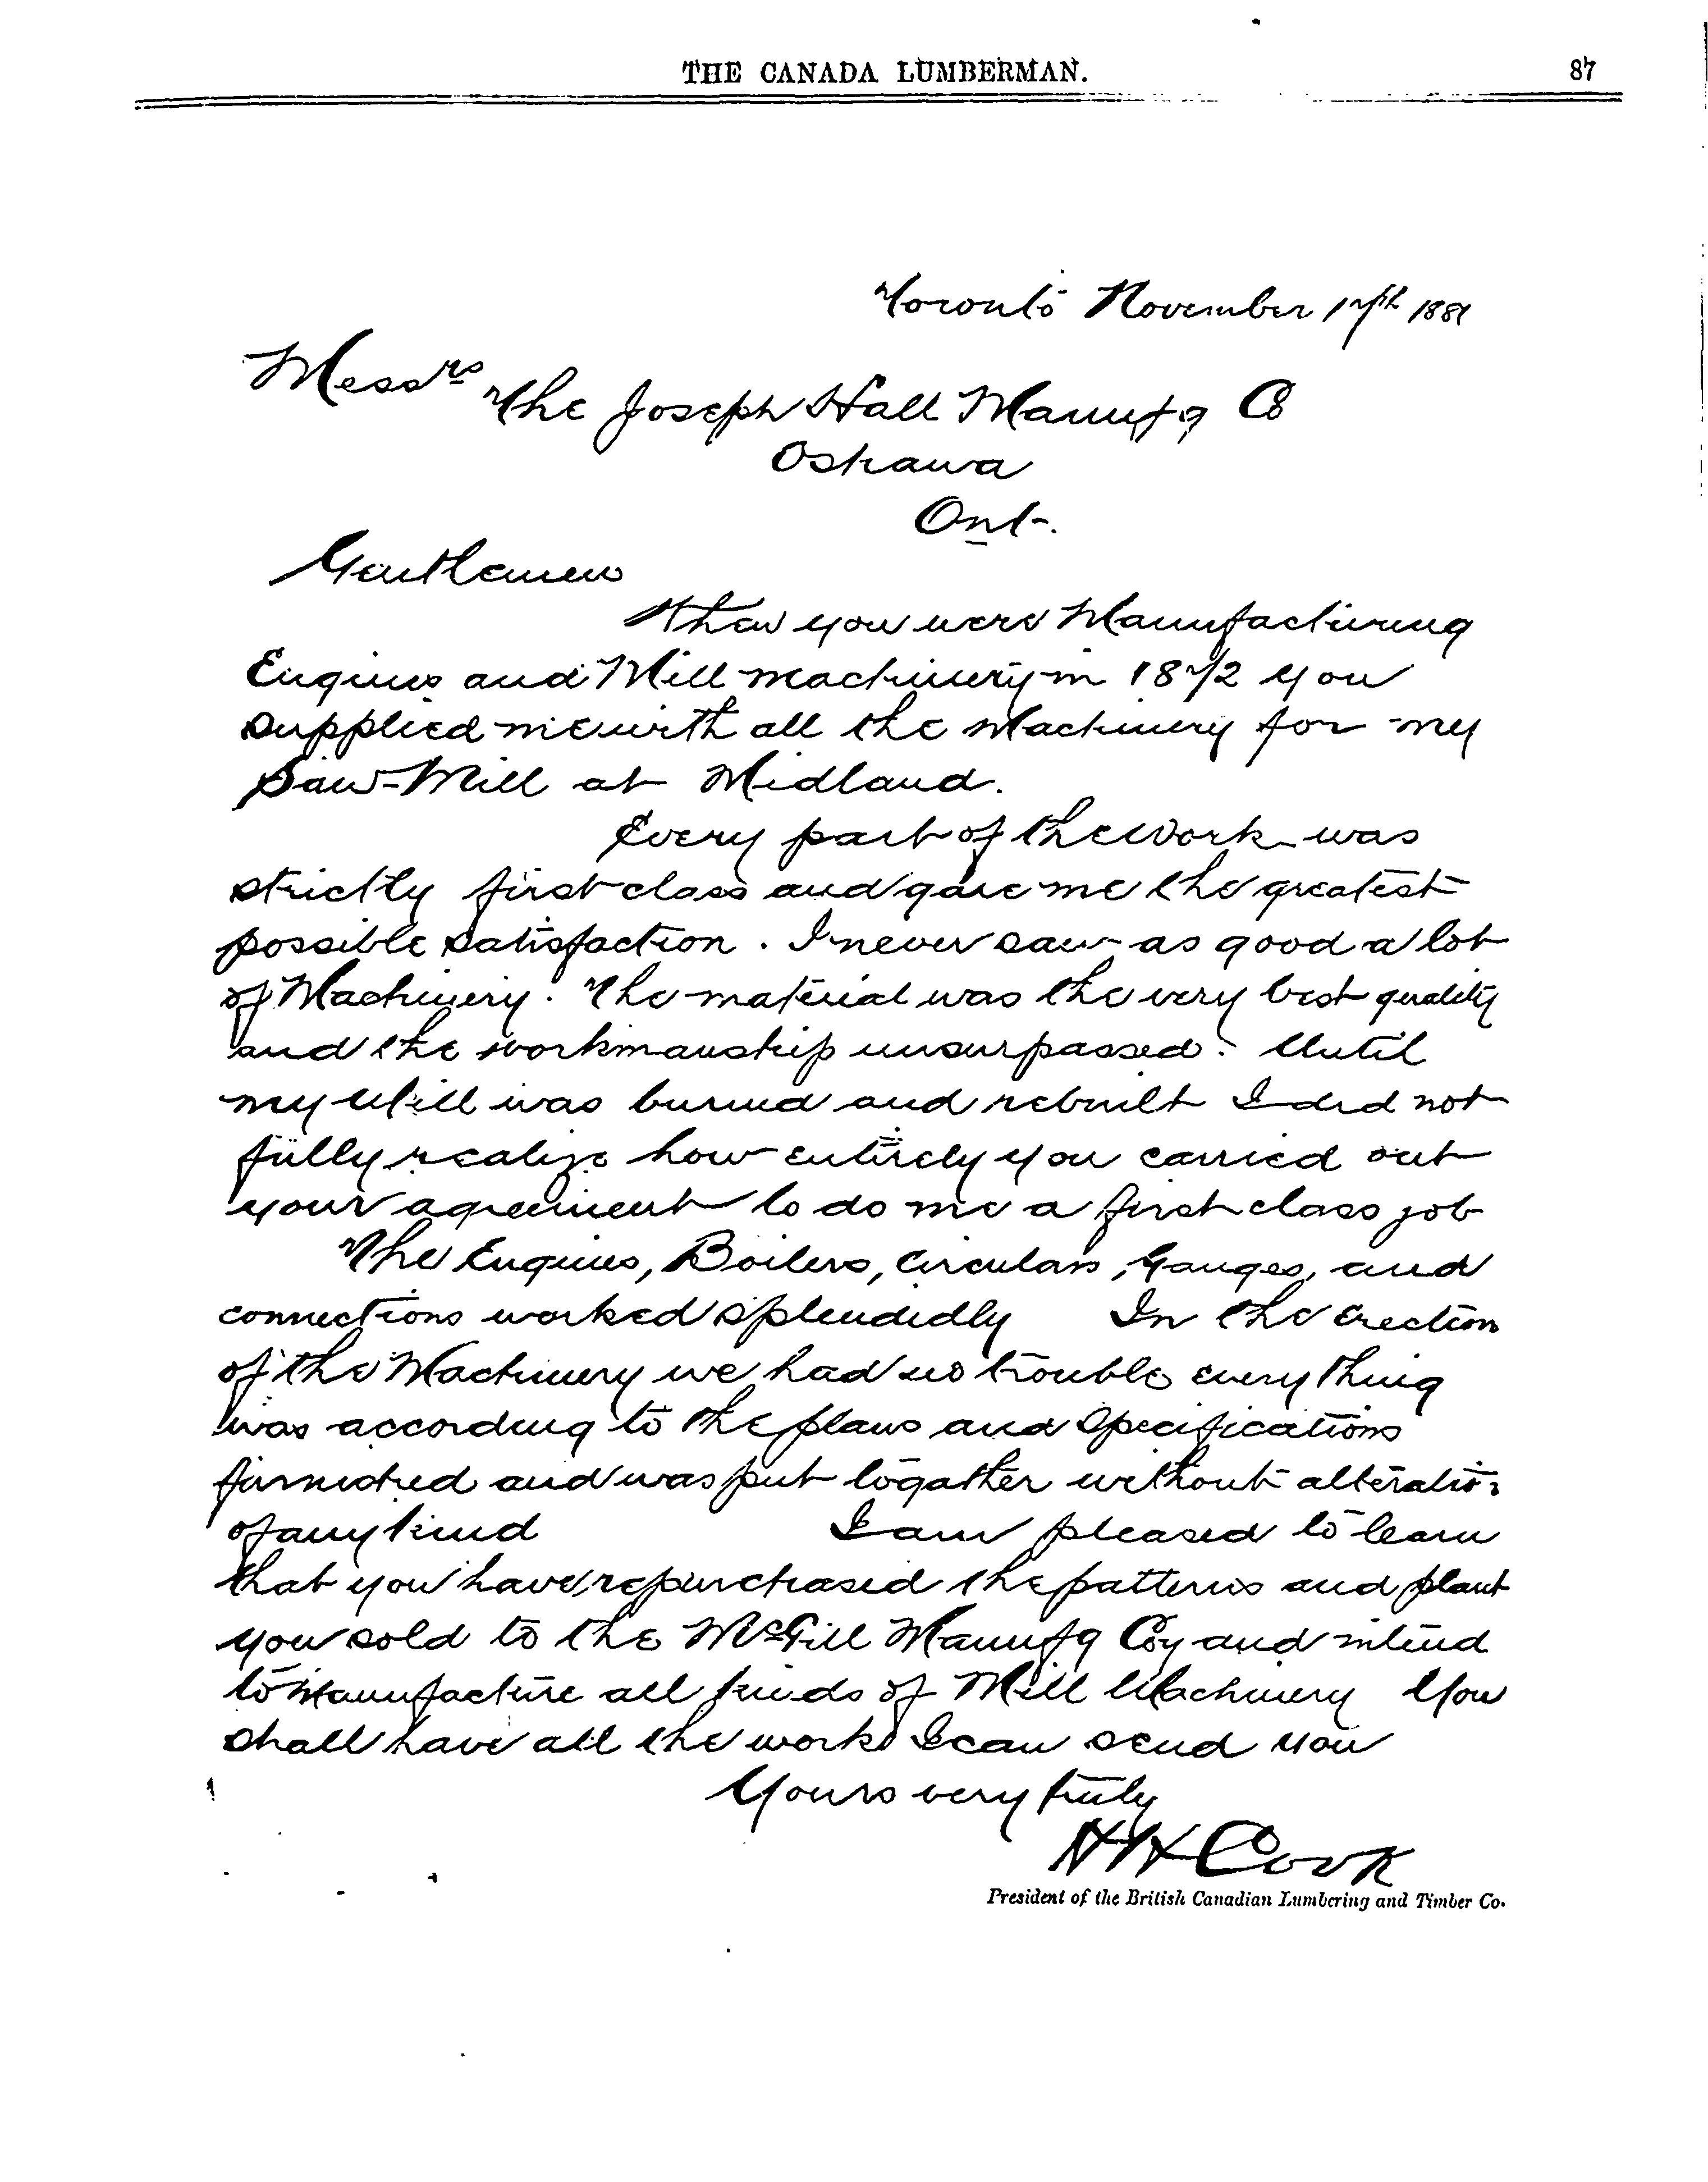 THE CANADA LUMBERMAN. 87
Toronto November 17th 1881
Messrs
The Joseph Hall Manufg Co
Oshawa
Ont.
Gentlemen
When you were Manufacturing
Engines and Mill machinery in 1872 you
supplied me with all the Machinery for my
Saw-Mill at Midland.
Every part of the work was
strictly first class and gave me the greatest
possible satisfaction. I never saw as good a lot
of Machinery. The material was the very best quality
and the workmanship unsurpassed. Until
my Mill was burned and rebuilt I did not
fully realize how entirely you carried out
your agreement to do me a first class job
The Engines, Boilers, Circulars, Gauges, and
connections worked splendidly In the erection
of the Machinery we had no trouble every thing
was according to the plans and specifications
furnished and was put togather without alteratio:
of any kind I am pleased to learn
that you have repurchased the patterns and plant
you sold to the McGill Manufg Coy and intend
to Manufacture all kinds of Mill Machinery You
shall have all the work I can send you
Yours very truly
H H Cook
President of the British Canadian Lumbering and Timber Co.